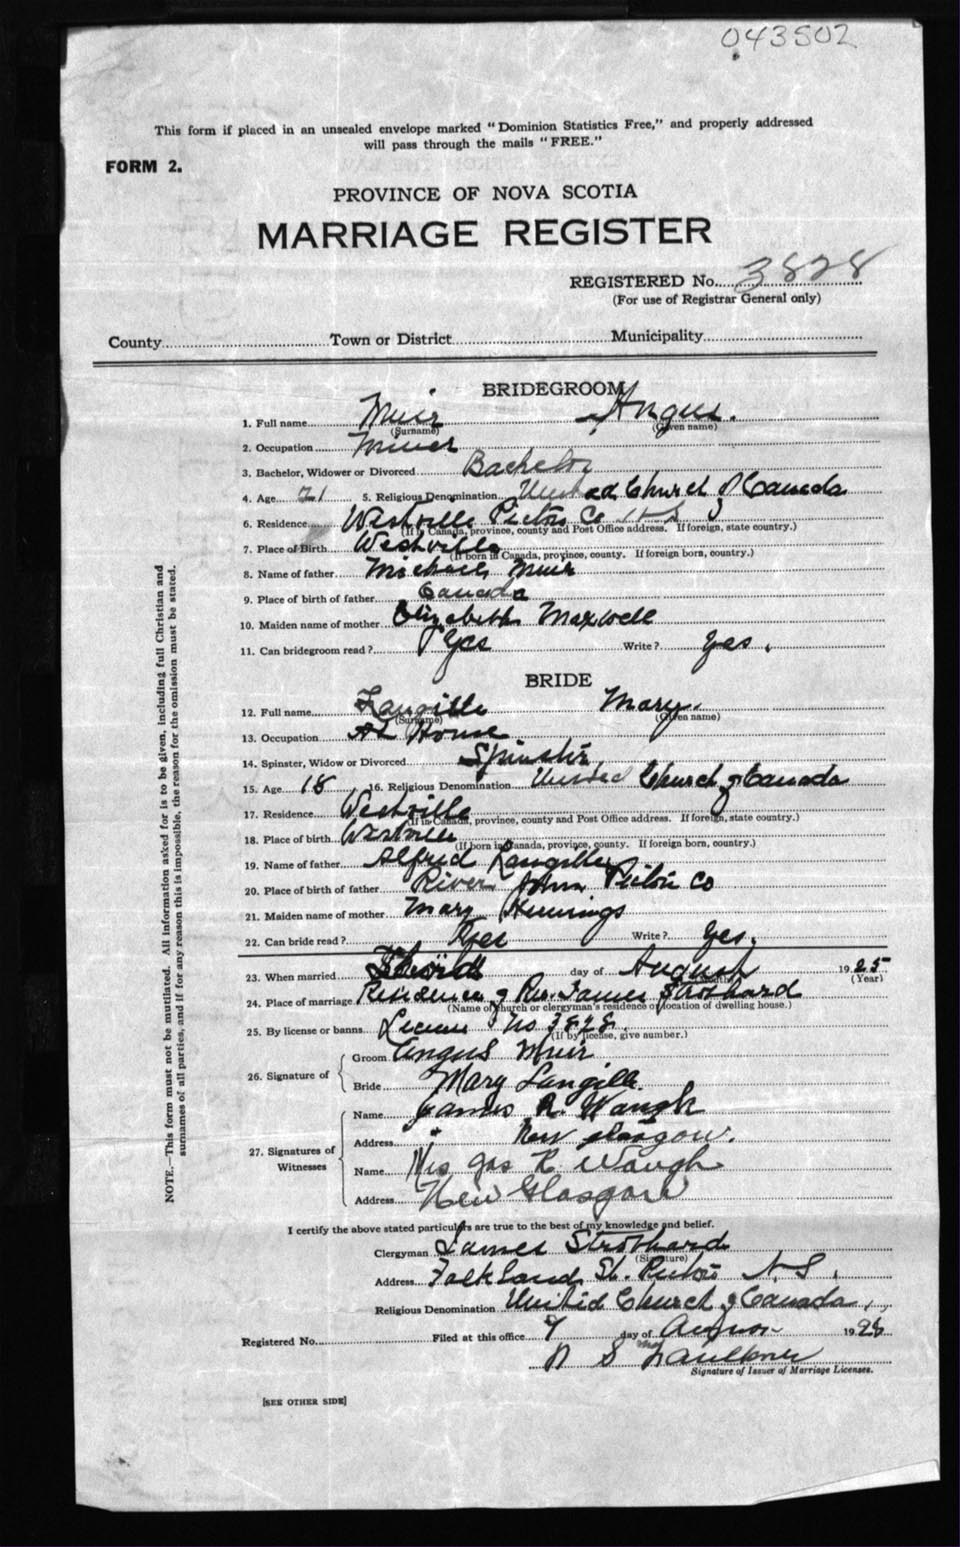 043502
This form if placed in an unsealed envelope marked "Dominion Statistics Free," and properly addressed
will pass through the mails "FREE."
FORM 2.
PROVINCE OF NOVA SCOTIA
MARRIAGE REGISTER
REGISTERED No. 3828
(For use of Registrar General only)
County Town or District Municipality
BRIDEGROOM
1. Full name Muir Angus.
(Surname) (Given name)
2. Occupation Miner
3. Bachelor, Widower or Divorced Bachelor
4. Age 21 5. Religious Denomination United Church of Canada
6. Residence Westville Pictou Co N S
(If in Canada, province, county and Post Office address. If foreign, state country.)
7. Place of Birth Westville
(If born in Canada, province, county. If foreign born, country.)
8. Name of father Michael Muir
9. Place of birth of father Canada
10. Maiden name of mother Elizabeth Maxwell
11. Can bridegroom read? Yes Write? Yes.
BRIDE
12. Full name Langille Mary.
(Surname) (Given name)
13. Occupation At Home
14. Spinster, Widow or Divorced Spinster
15. Age 18 16. Religious Denomination United Church of Canada
17. Residence Westville
(If in Canada, province, county and Post Office address. If foreign, state country.)
18. Place of birth Westville
(If born in Canada, province, county. If foreign born, country.)
19. Name of father Alfred Langille
20. Place of birth of father River John Pictou Co
21. Maiden name of mother Mary Hennings
22. Can bride read? Yes Write? Yes.
23. When married day of August 1925
(Year)
24. Place of marriage Residence of Rev. James Strothard
(Name of church or clergyman's residence or location of dwelling house.)
25. By license or banns License No 3828.
(If by license, give number.)
26. Signature of Groom Angus Muir
Bride Mary Langille.
27. Signatures of Witnesses Name James R. Waugh
Address New Glasgow.
Name Mrs Jas R. Waugh
Address New Glasgow
I certify the above stated particulars are true to the best of my knowledge and belief.
Clergyman James Strothard
(Signature)
Address Falkland St. Pictou N.S.
Religious Denomination United Church of Canada,
Registered No. Filed at this office 7 day of August 1928
S Faulkner
Signature of Issuer of Marriage Licenses.
[SEE OTHER SIDE]
NOTE.—This form must not be mutilated. All information asked for is to be given, including full Christian and
surnames of all parties, and if for any reason this is impossible, the reason for the omission must be stated.